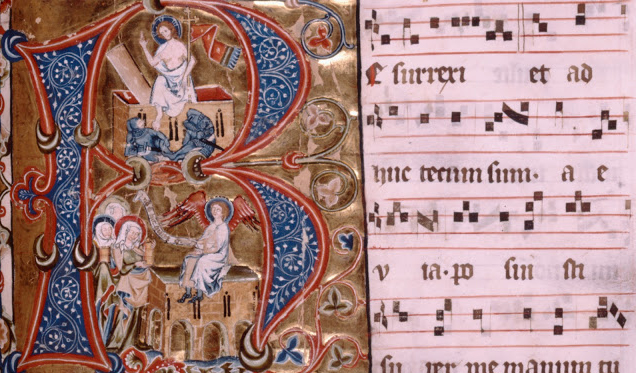 RE surrexi et ad
huc tecum sum. a e
v ia. po sui sti
su per me manum tu